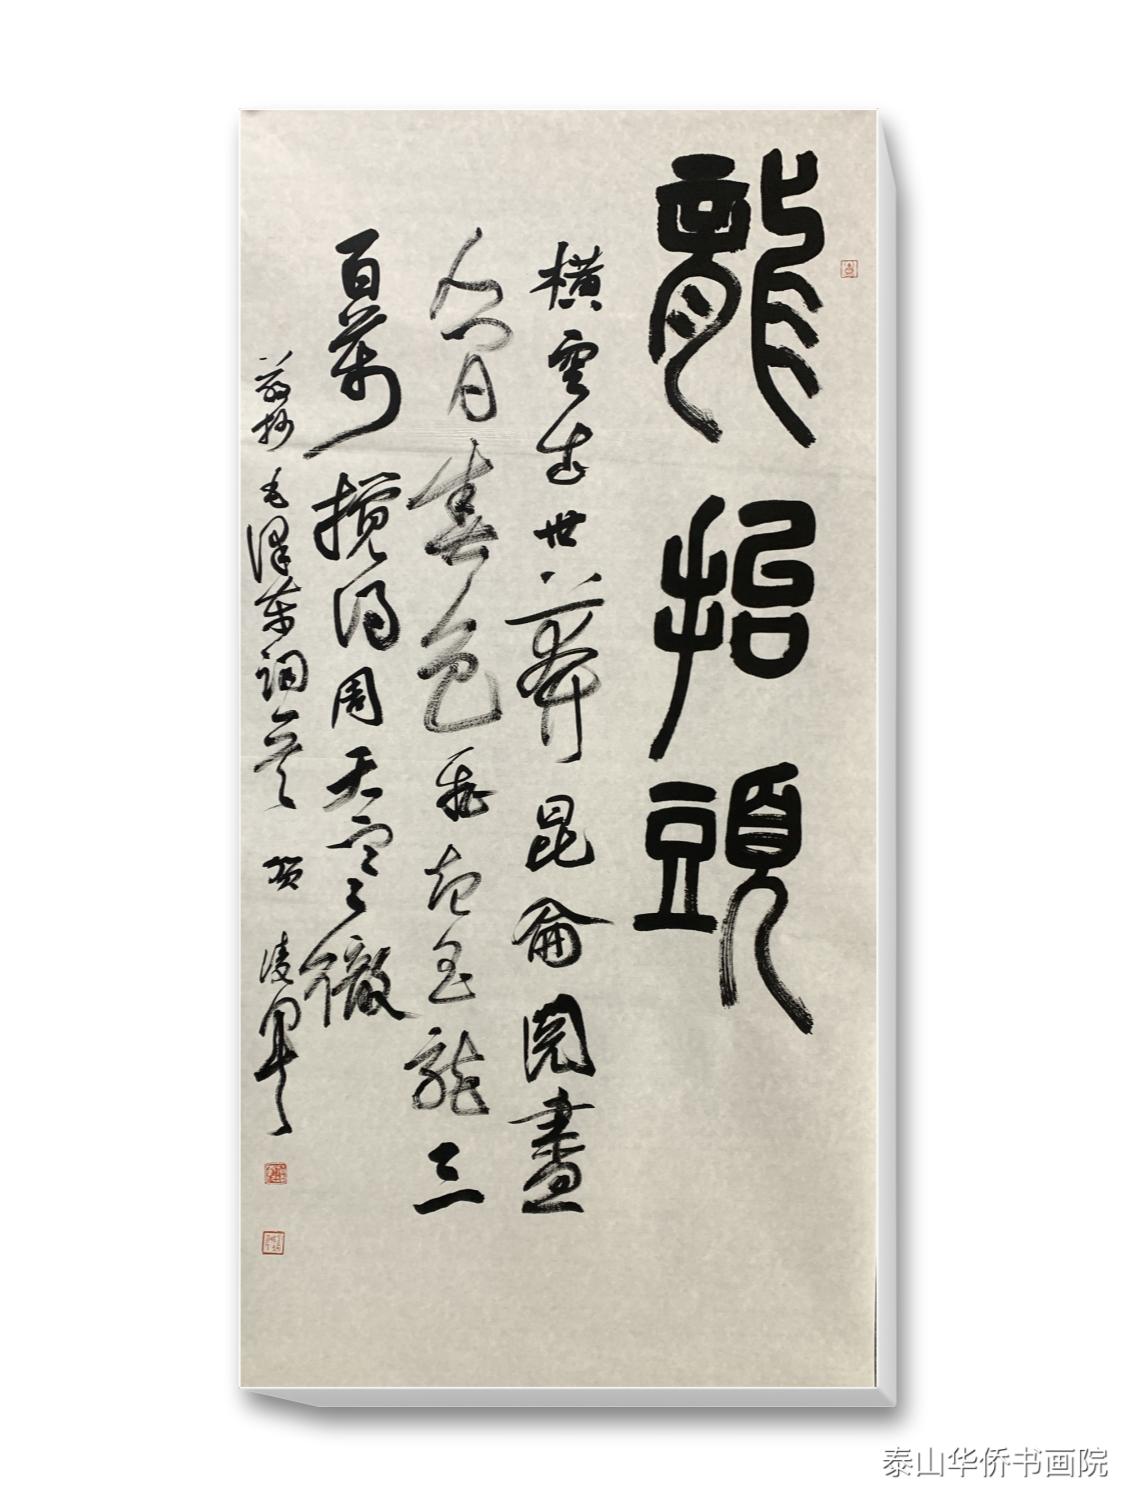 龍抬頭
橫空出世莽昆侖閱盡
人間春色飛起玉龍三
百萬攪得周天寒徹
敬抄毛澤東詞
泰山华侨书画院